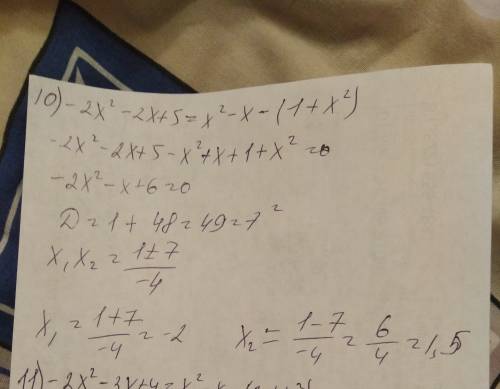 10) -2x² -2x+5 = x² -x -(1+x²)
-2x² -2x+5 -x²+x+1+x² =0
-2x² -x+6=0
D=1+48=49=7²
x₁ x₂ = (1±7)/(-4)
x₁ = (1+7)/(-4) = -2 x₂ = (1-7)/(-4) = 6/4 = 1,5
11) -2x² -3x+4= x²